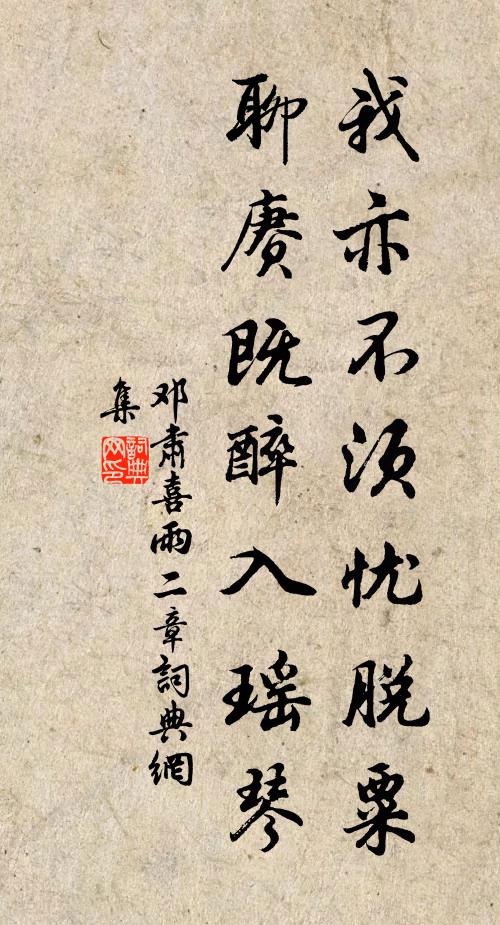 我亦不须忧脱粟
聊赓既醉入瑶琴
邓肃喜雨二章詞典網
集
詞典
网印